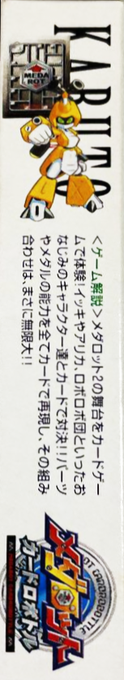 MEDA
ROT
KABUTO
<ゲーム解説>メダロット2の舞台をカードゲー
ムで体験!イッキやアリカ、ロボロボ団といったお
なじみのキャラクター達とカードで対決!!パーツ
やメダルの能力を全てカードで再現し、その組み
合わせは、まさに無限大!!
メダロット
カードロボトル